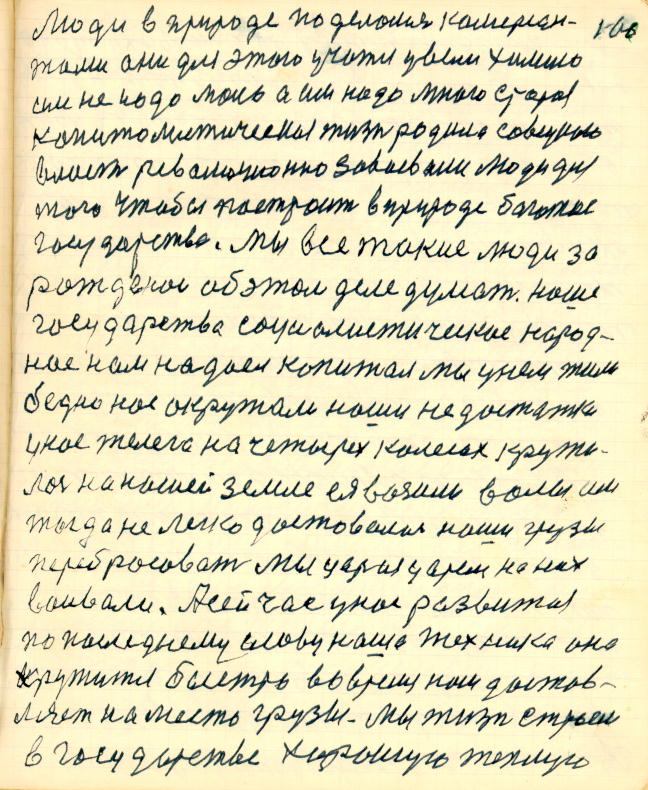 Люди в природе поделались комерсан- 106
тами они для этого учатся увели химию
им не надо мань а им надо много старая
капитолистическая жизн родила советскую
власть революционно завоевали люди для
того чтобы построит в природе богатое
государства. Мы все такие люди за
рождёное об этом деле думат. наше
государства социолистическое народ-
ное нам надоел капитал мы у нем жили
бедно нас окружали наши недостатки
у нас телега на четырех колесах крути-
лас на нашей земле ея возили волы им
тогда не легко доставолос наши грузы
перебросоват мы царя царем на них
воивали. А сейчас у нас развитая
по последнему слову наша техника она
крутится быстро вовремя нам достов-
ляет на место грузы. Мы жизн строем
в государстве хорошую теплую